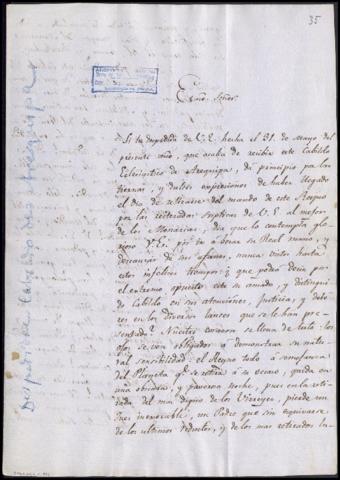 35
Exmo. Señor.
Si la despedida de V.E. hecha el 31. de Mayo del
presente año, que acaba de recibir este Cabildo
Eclesiastico de Arequipa, dá principio por las
tiernas, y dulces expresiones de haber llegado
el dia de retirarse del mando de este Reyno
por las reiteradas suplicas de V.E. al mejor
de los Monarcas, dia que lo contempla glo-
rioso V.E. pr. ir a besar su Real mano, y
descansar de sus afanes, nunca visto hasta
estos infelices tiempos: ¿que podrá decir por
el extremo opuesto este su amado, y distingui-
do Cabildo en sus atenciones, Justicia, y
en los diversos lances que se le han pre-
sentado? Nuestro corazon se llena de luto: los
ojos se ven obligados a demonstrar su natu-
ral sensibilidad: el Reyno todo à semejanza
del Planeta qe. se retira à su ocaso, queda en
una obscura, y pavorosa noche, pues en la reti-
rada del mas digno de los Virreyes, pierde un
Juez inexorable, un Padre que sin equivocarse
de los ultimos reductos, y de los mas retirados lu-
Despedida Cabildo de Arequipa